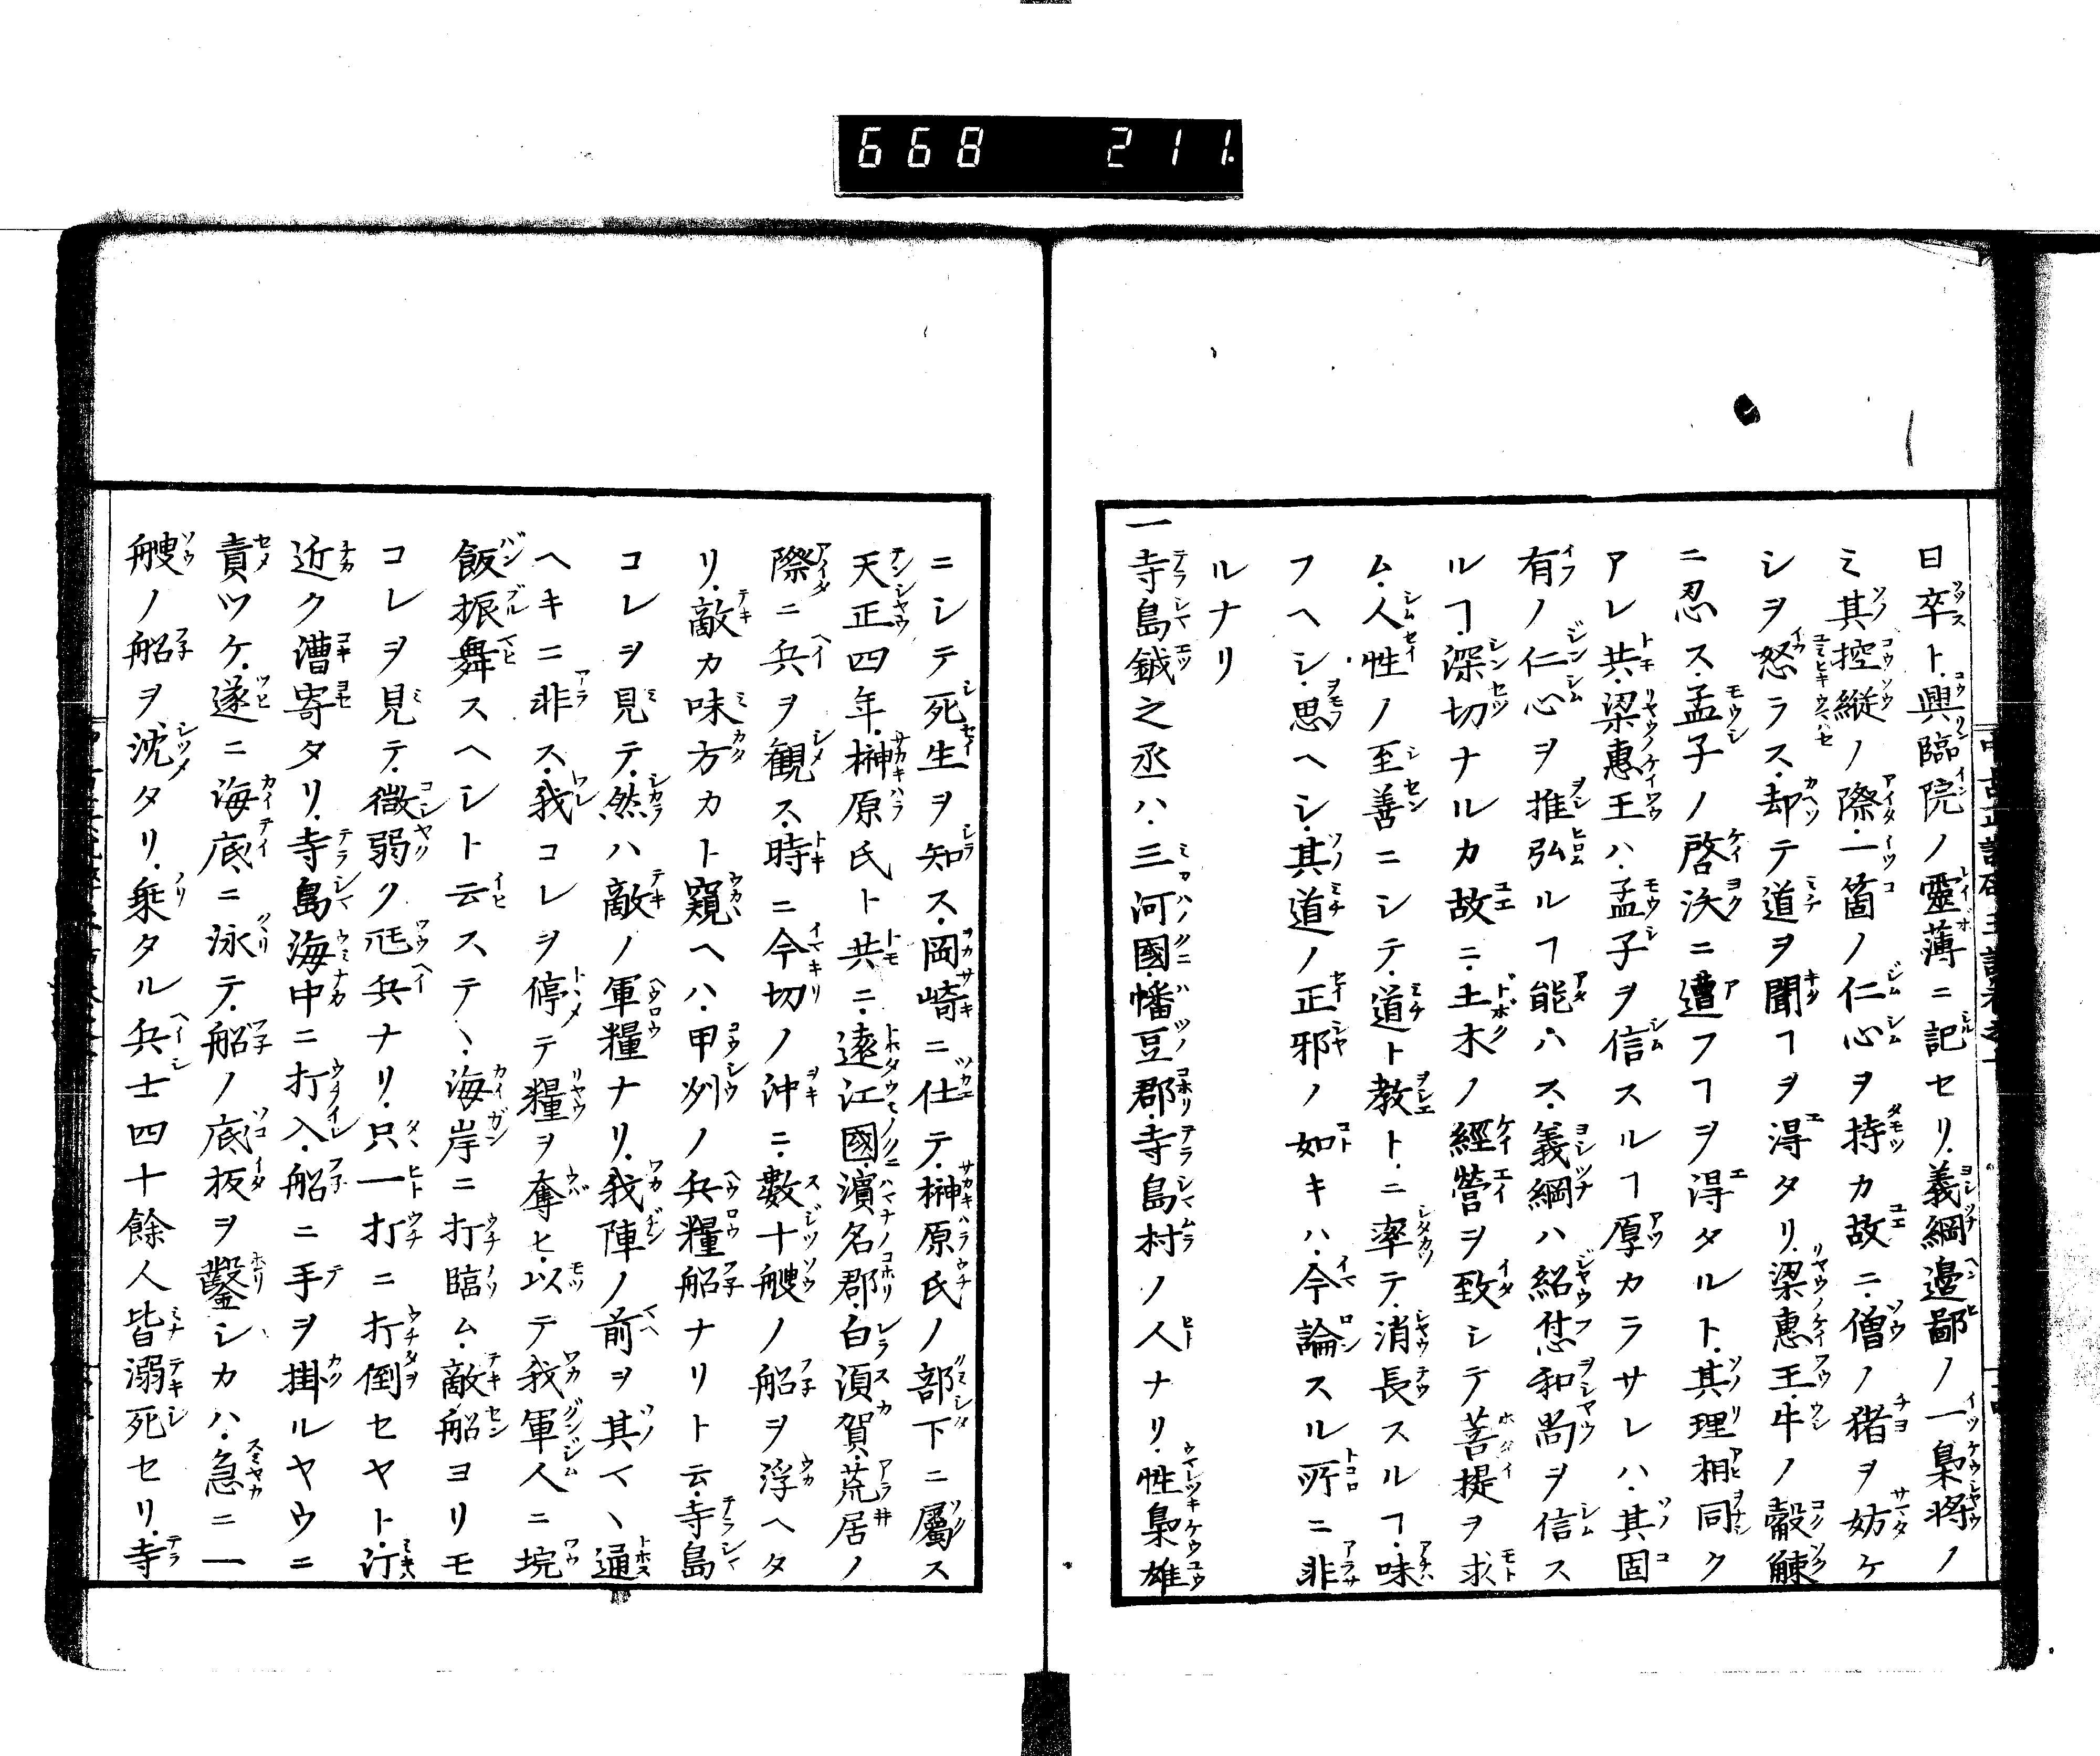 668 211.
日卒ト興臨院ノ靈薄ニ記セリ義綱邊鄙ノ一梟將ノ
ミ其控縦ノ際一箇ノ仁心ヲ持カ故ニ僧ノ猪ヲ妨ケ
シヲ怒ラス却テ道ヲ聞ヿヲ得タリ梁惠王牛ノ觳觫
ニ忍ス孟子ノ啓沃ニ遭フヿヲ得タルト其理相同ク
アレ共梁惠王ハ孟子ヲ信スルヿ厚カラサレハ其固
有ノ仁心ヲ推弘ルヿ能ハス義綱ハ紹恷和尚ヲ信ス
ルヿ深切ナルカ故ニ土木ノ經營ヲ致シテ菩提ヲ求
ム人性ノ至善ニシテ道ト教トニ率テ消長スルヿ味
フヘシ思ヘシ其道ノ正邪ノ如キハ今論スル所ニ非
ルナリ
一寺島鉞之丞ハ三河國幡豆郡寺島村ノ人ナリ性梟雄
ニシテ死生ヲ知ス岡崎ニ仕テ榊原氏ノ部下ニ屬ス
天正四年榊原氏ト共ニ遠江國濱名郡白湏賀荒居ノ
際ニ兵ヲ觀ス時ニ今切ノ沖ニ數十艘ノ船ヲ浮ヘタ
リ敵カ味方カト窺ヘハ甲州ノ兵糧船ナリト云寺島
コレヲ見テ然ハ敵ノ軍糧ナリ我陣ノ前ヲ其マヽ通
ヘキニ非ス我コレヲ停テ糧ヲ奪ヒ以テ我軍人ニ埦
飯振舞スヘシト云ステヽ海岸ニ打臨ム敵船ヨリモ
コレヲ見テ微弱ク尫兵ナリ只一打ニ打倒セヤト汀
近ク漕寄タリ寺島海中ニ打入船ニ手ヲ掛ルヤウニ
責ツケ遂ニ海底ニ泳テ船ノ底板ヲ鑿シカハ急ニ一
艘ノ船ヲ沈タリ乗タル兵士四十餘人皆溺死セリ寺